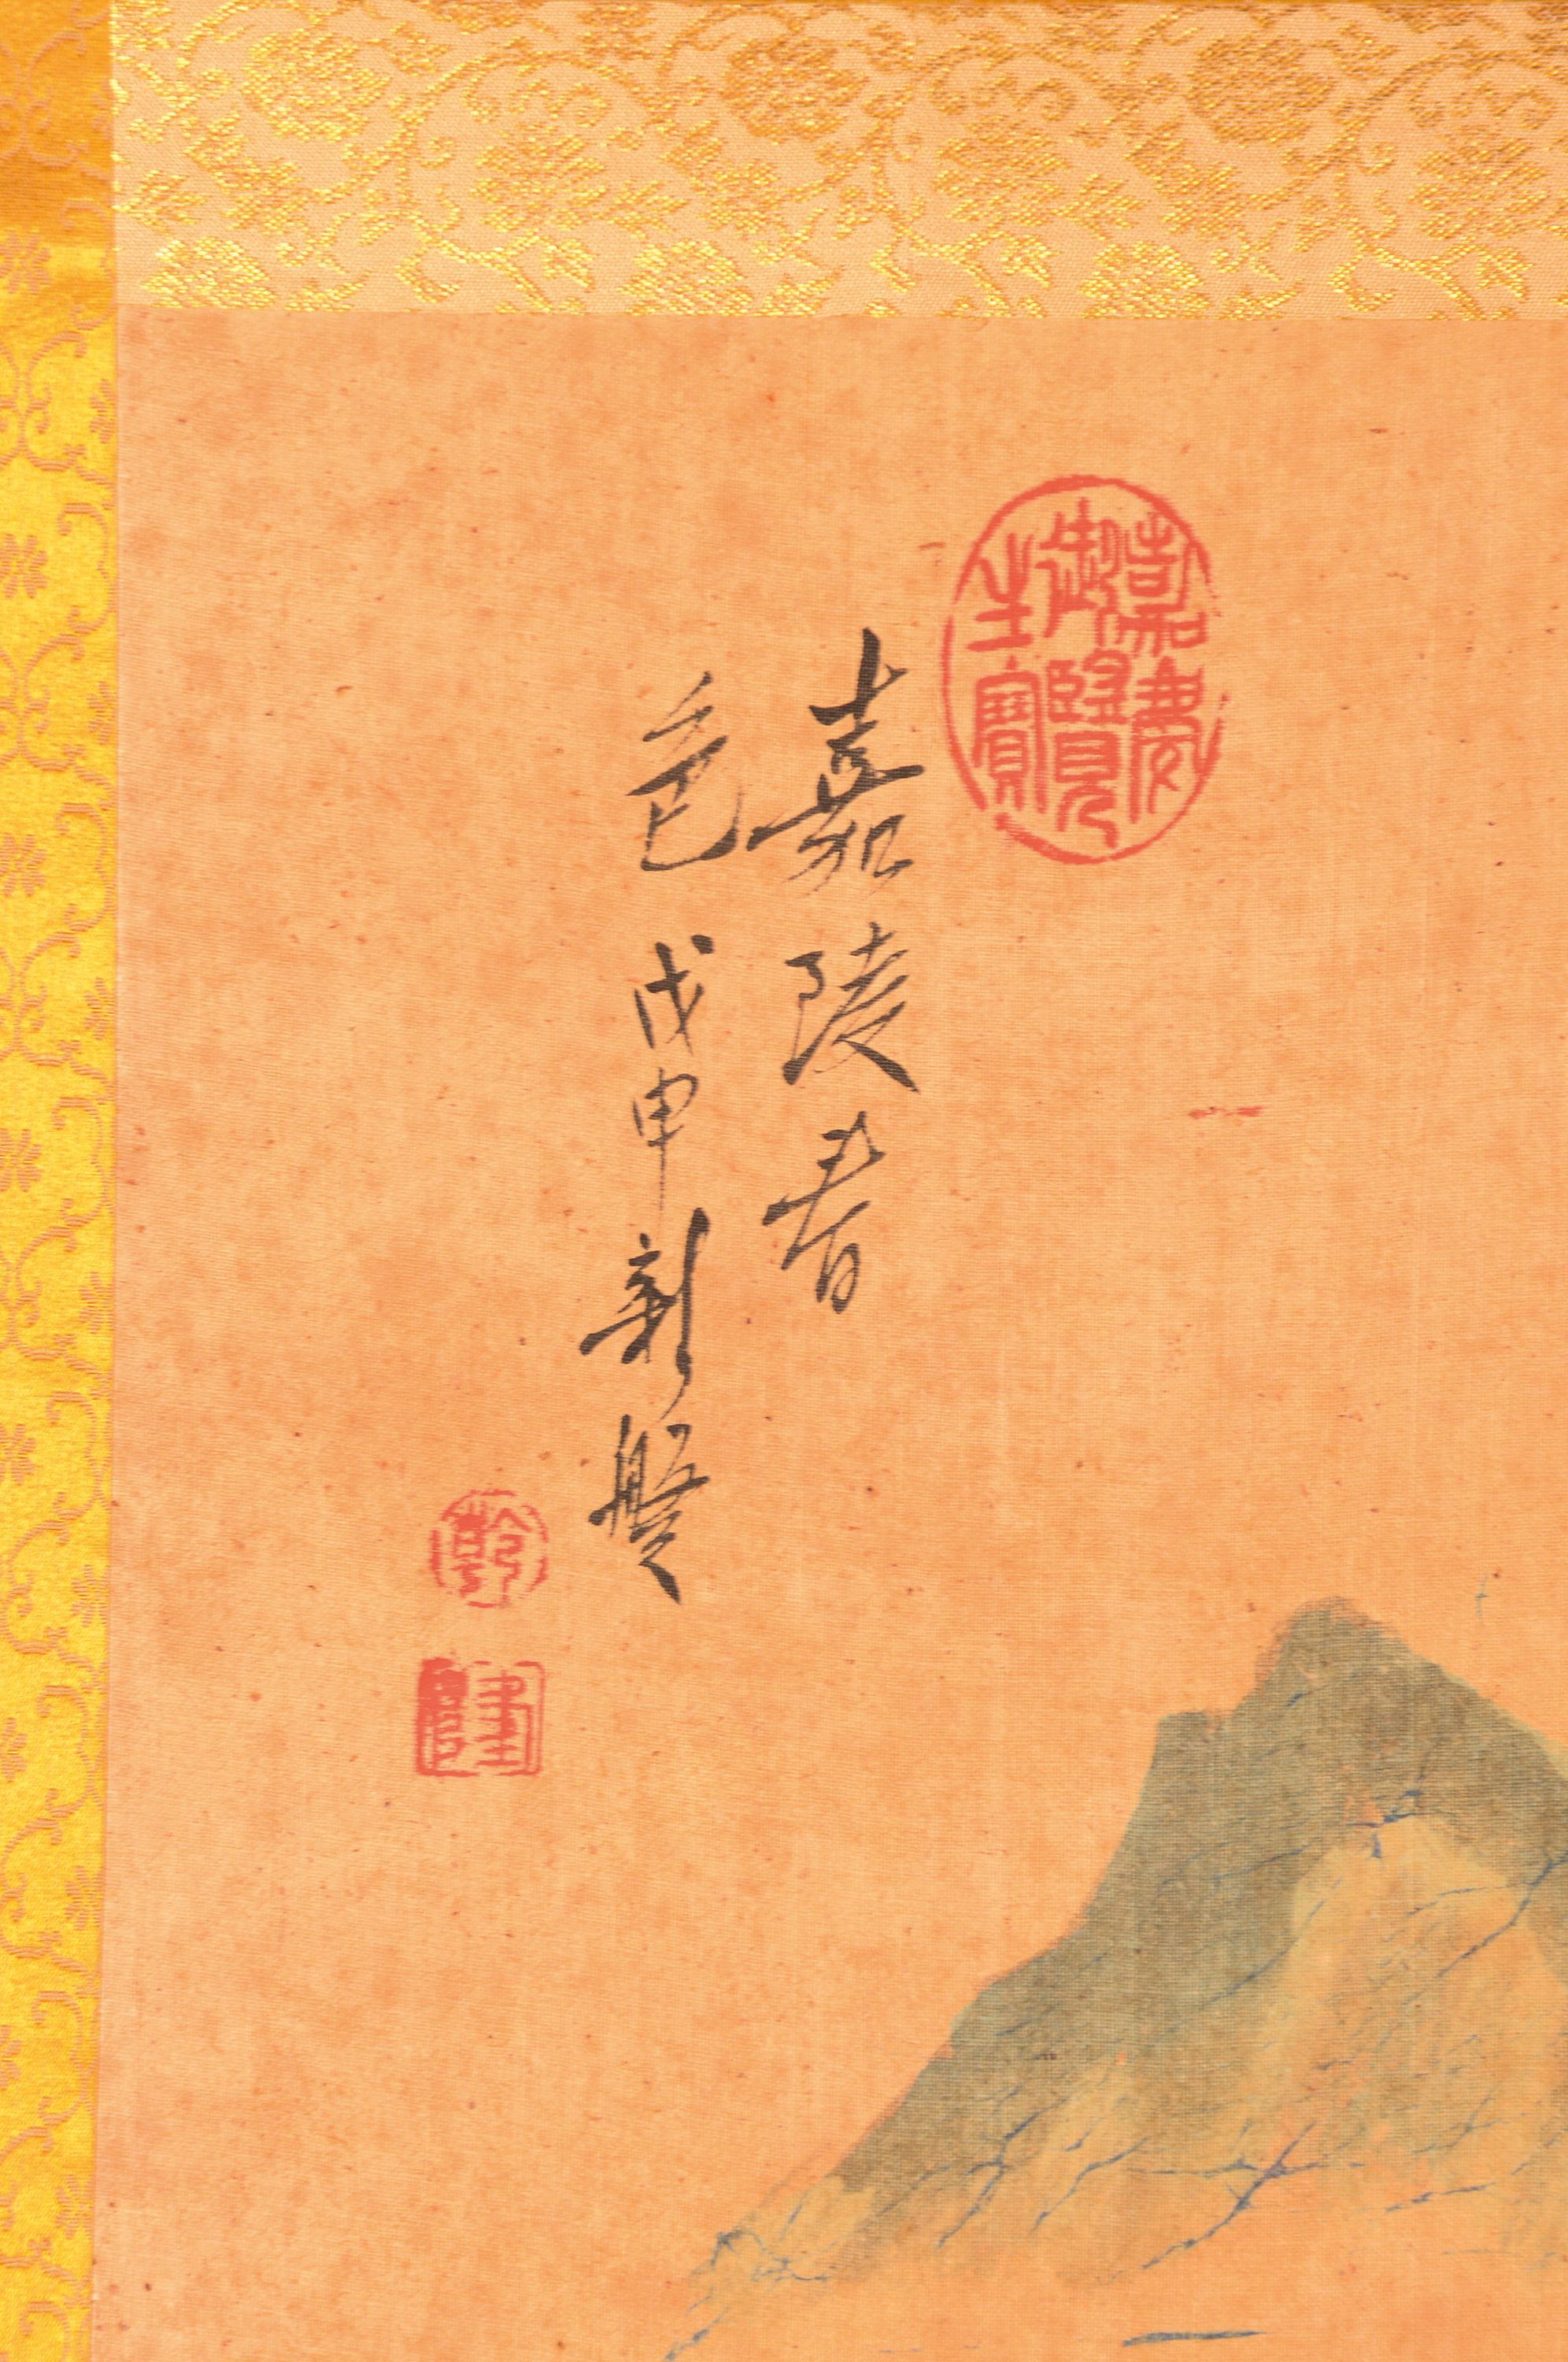 嘉慶御覽之寶
嘉陵春
色 戊申新